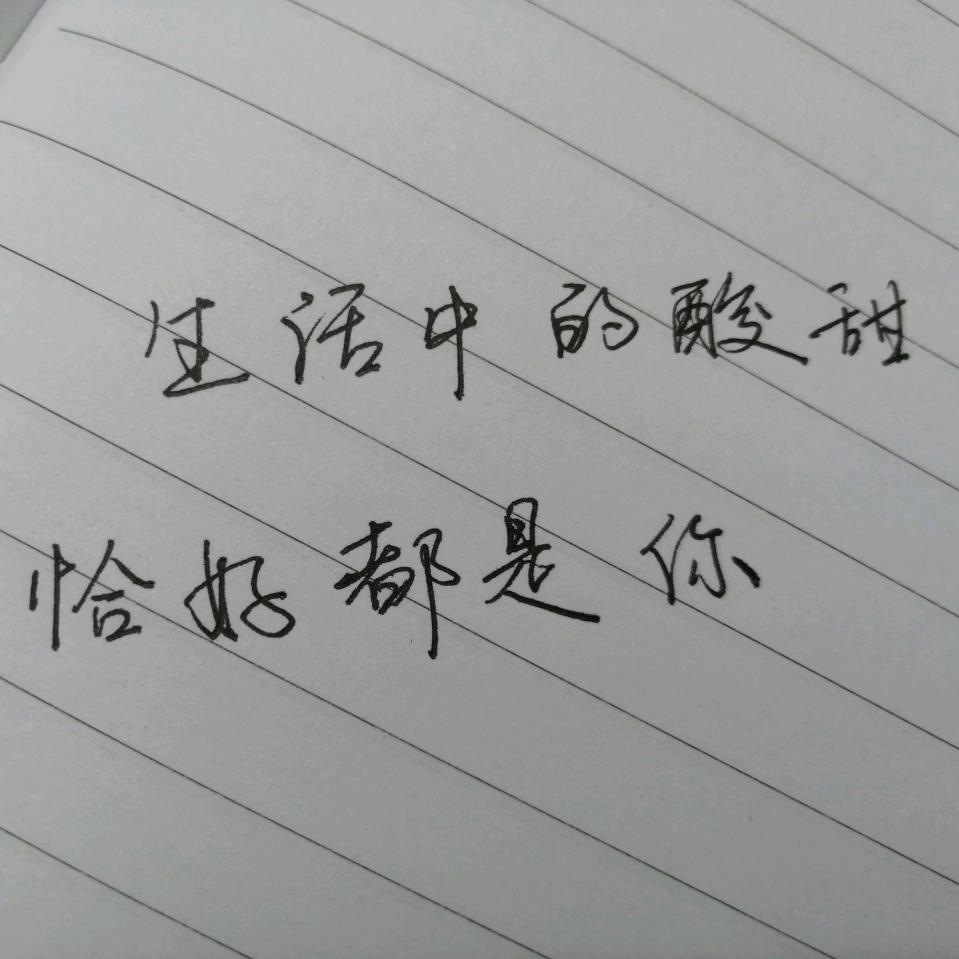 生活中的酸甜
恰好都是你